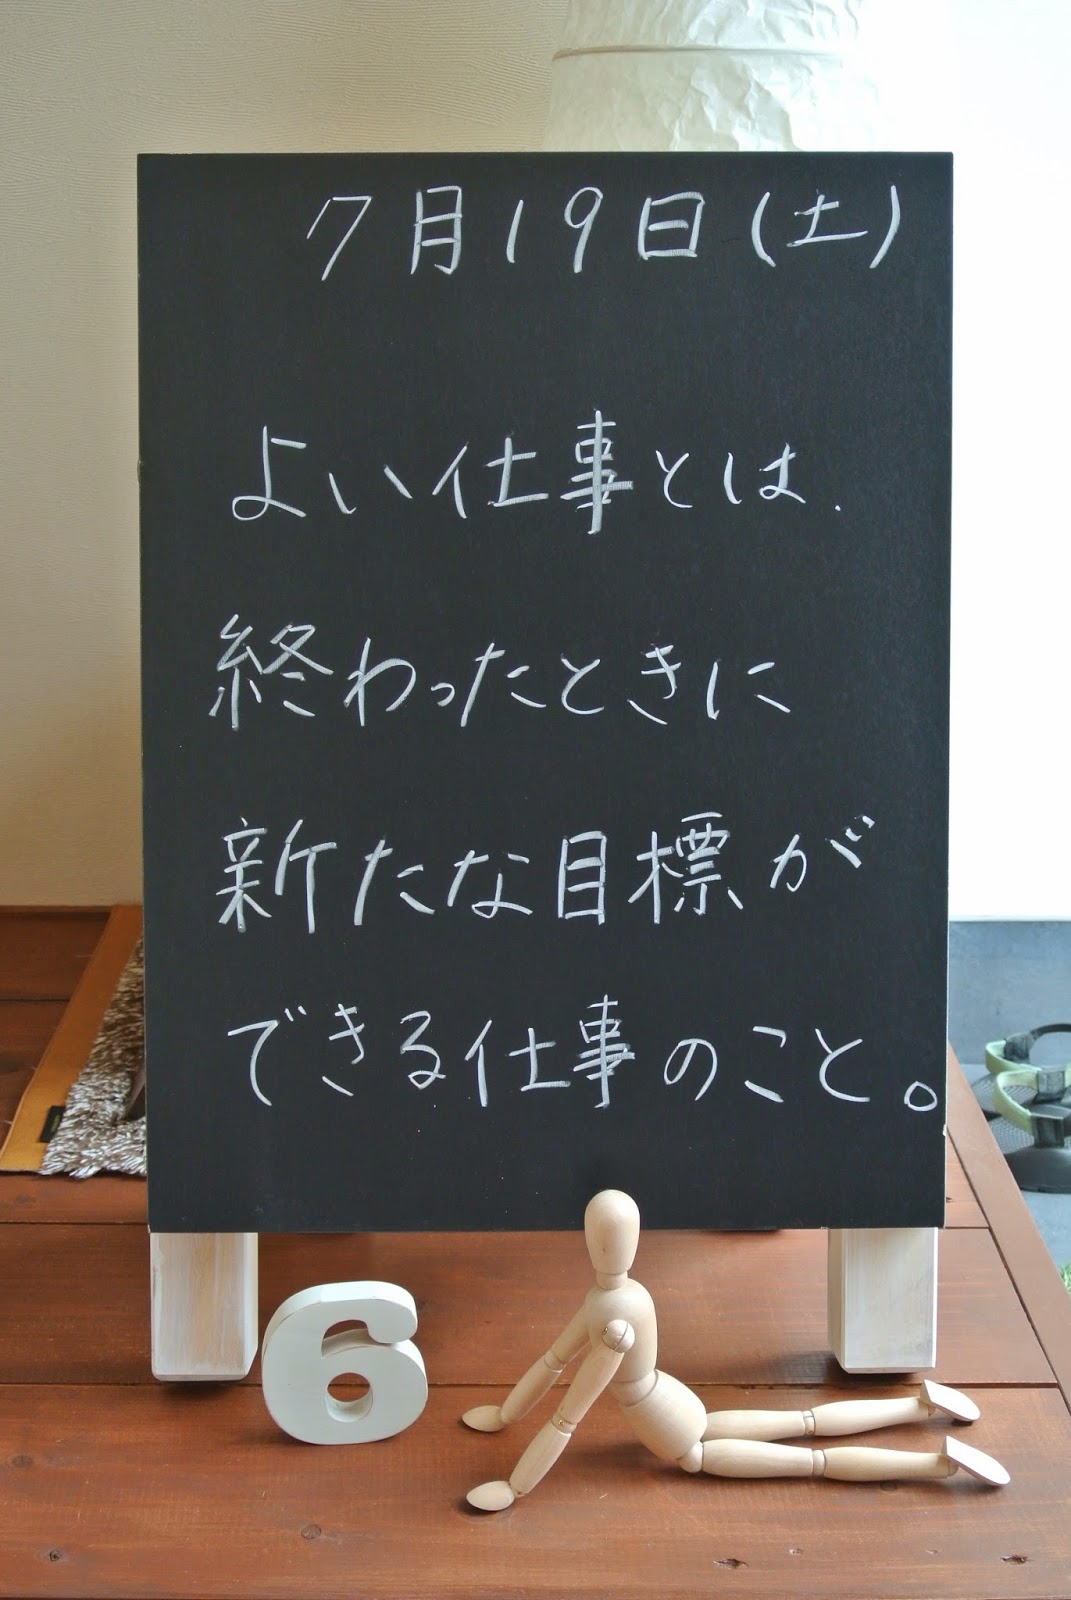 7月19日(土)
よい仕事とは、
終わったときに
新たな目標が
できる仕事のこと。
6